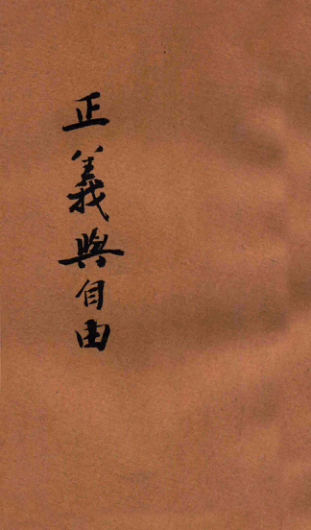 正義與自由